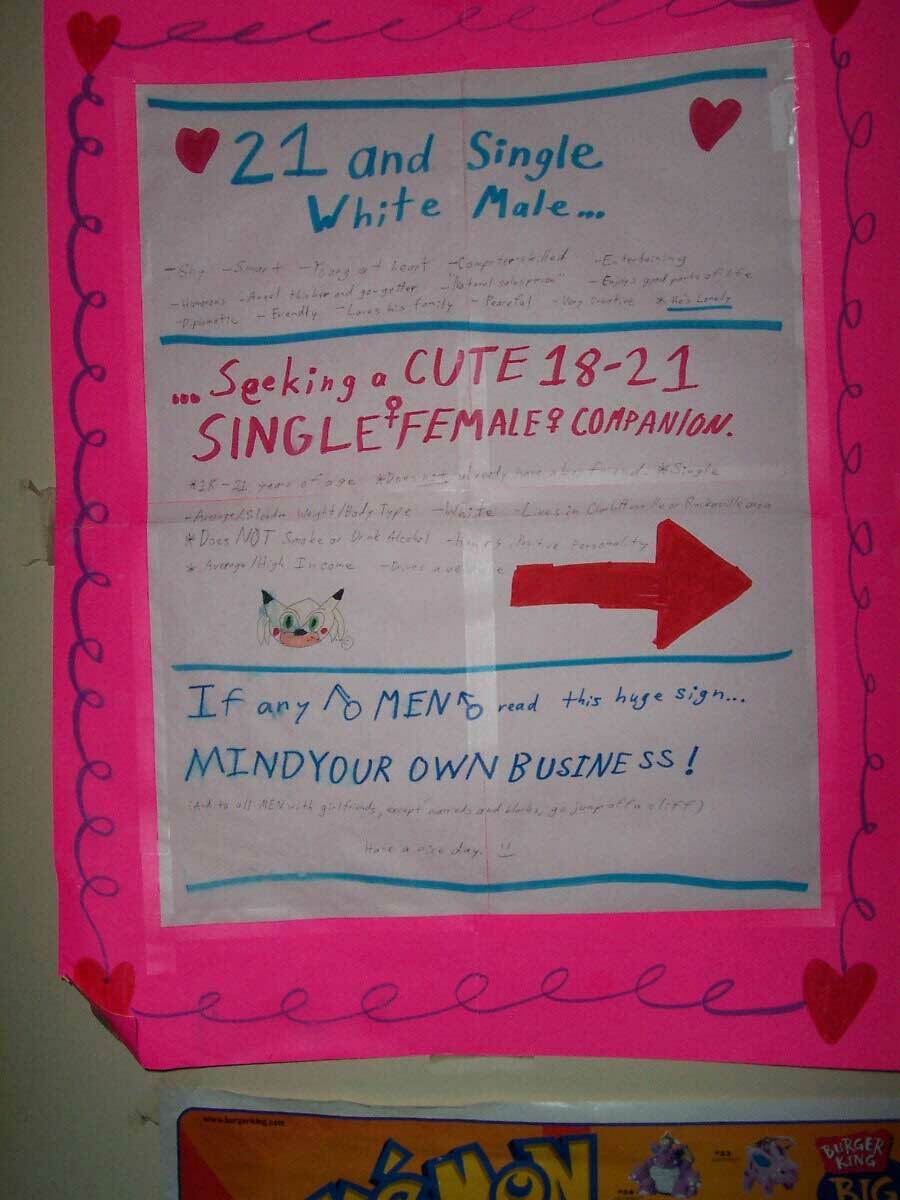 21 and Single
White Male...
-Shy -Smart -Young at heart -Computer skilled -Entertaining
-Humorous -A real thinker and go-getter -"Natural salesperson" -Enjoys good parts of life
-Diplomatic -Friendly -Loves his family -Peaceful -Very Creative *He's Lonely
...Seeking a CUTE 18-21
SINGLE♀FEMALE♀COMPANION.
*18-21 years of age *Does not already have a boyfriend. *Single
-Average/Slender Weight/Body Type -White -Lives in Charlottesville or Ruckersville area
*Does NOT Smoke or Drink Alcohol - Positive Personality
*Average/High Income -Drives a
If any ♂ MEN ♂ read this huge sign...
MIND YOUR OWN BUSINESS!
(And to all MEN with girlfriends, except marrieds and blacks, go jump off a cliff)
Have a nice day.
www.burgerking.com
POKéMON
#34
#33
BURGER
KING
BIG